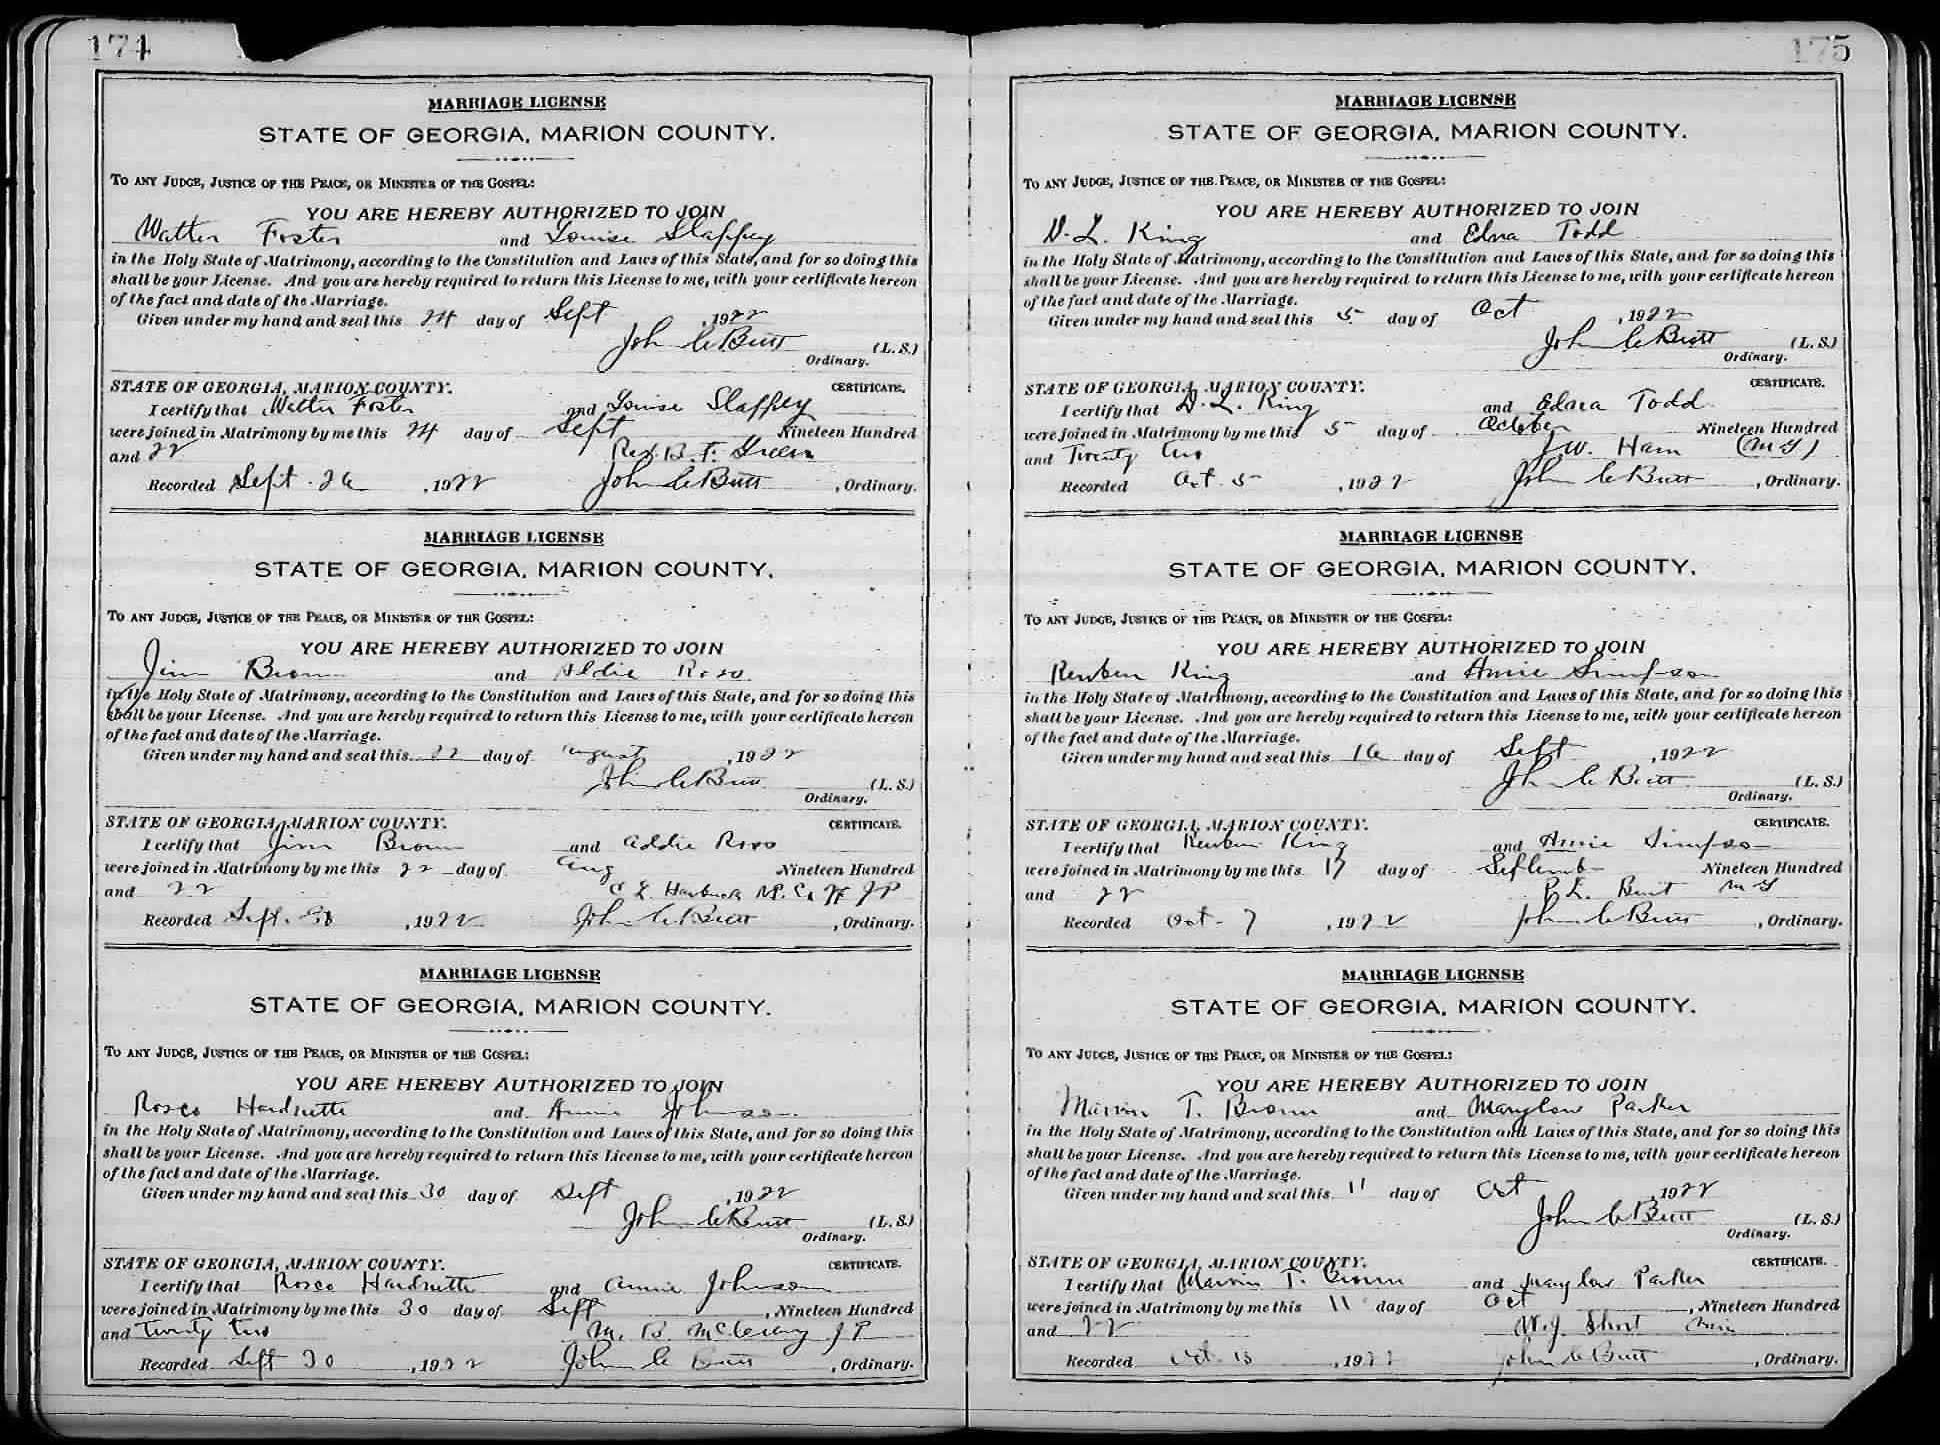 174
MARRIAGE LICENSE
STATE OF GEORGIA, MARION COUNTY.
TO ANY JUDGE, JUSTICE OF THE PEACE, OR MINISTER OF THE GOSPEL:
YOU ARE HEREBY AUTHORIZED TO JOIN
Walter Foster and Louise Slappey
in the Holy State of Matrimony, according to the Constitution and Laws of this State, and for so doing this
shall be your License. And you are hereby required to return this License to me, with your certificate hereon
of the fact and date of the Marriage.
Given under my hand and seal this 24 day of Sept, 1922
John C Butt (L. S.)
Ordinary.
STATE OF GEORGIA, MARION COUNTY. CERTIFICATE.
I certify that Walter Foster and Louise Slappey
were joined in Matrimony by me this 24 day of Sept Nineteen Hundred
and 22 Rev. B. F. Green
Recorded Sept. 26, 1922 John C Butt, Ordinary.
MARRIAGE LICENSE
STATE OF GEORGIA, MARION COUNTY.
TO ANY JUDGE, JUSTICE OF THE PEACE, OR MINISTER OF THE GOSPEL:
YOU ARE HEREBY AUTHORIZED TO JOIN
Jim Brown and Addie Ross
in the Holy State of Matrimony, according to the Constitution and Laws of this State, and for so doing this
shall be your License. And you are hereby required to return this License to me, with your certificate hereon
of the fact and date of the Marriage.
Given under my hand and seal this 22 day of August, 1922
John C Butt (L. S.)
Ordinary.
STATE OF GEORGIA, MARION COUNTY. CERTIFICATE.
I certify that Jim Brown and Addie Ross
were joined in Matrimony by me this 22 day of Aug Nineteen Hundred
and 22 JP
Recorded Sept. 30, 1922 John C Butt, Ordinary.
MARRIAGE LICENSE
STATE OF GEORGIA, MARION COUNTY.
TO ANY JUDGE, JUSTICE OF THE PEACE, OR MINISTER OF THE GOSPEL:
YOU ARE HEREBY AUTHORIZED TO JOIN
Rosco Hardnette and Annie Johnson
in the Holy State of Matrimony, according to the Constitution and Laws of this State, and for so doing this
shall be your License. And you are hereby required to return this License to me, with your certificate hereon
of the fact and date of the Marriage.
Given under my hand and seal this 30 day of Sept, 1922
John C Butt (L. S.)
Ordinary.
STATE OF GEORGIA, MARION COUNTY. CERTIFICATE.
I certify that Rosco Hardnette and Annie Johnson
were joined in Matrimony by me this 30 day of Sept, Nineteen Hundred
and twenty two M. B. McCrary J P
Recorded Sept 30, 1922 John C Butt, Ordinary.
175
MARRIAGE LICENSE
STATE OF GEORGIA, MARION COUNTY.
TO ANY JUDGE, JUSTICE OF THE PEACE, OR MINISTER OF THE GOSPEL:
YOU ARE HEREBY AUTHORIZED TO JOIN
D. L. King and Edna Todd
in the Holy State of Matrimony, according to the Constitution and Laws of this State, and for so doing this
shall be your License. And you are hereby required to return this License to me, with your certificate hereon
of the fact and date of the Marriage.
Given under my hand and seal this 5 day of Oct, 1922
John C Butt (L. S.)
Ordinary.
STATE OF GEORGIA, MARION COUNTY. CERTIFICATE.
I certify that D. L. King and Edna Todd
were joined in Matrimony by me this 5 day of October Nineteen Hundred
and Twenty two J W. Ham (M G)
Recorded Oct. 5, 1922 John C Butt, Ordinary.
MARRIAGE LICENSE
STATE OF GEORGIA, MARION COUNTY.
TO ANY JUDGE, JUSTICE OF THE PEACE, OR MINISTER OF THE GOSPEL:
YOU ARE HEREBY AUTHORIZED TO JOIN
Reuben King and Annie Simpson
in the Holy State of Matrimony, according to the Constitution and Laws of this State, and for so doing this
shall be your License. And you are hereby required to return this License to me, with your certificate hereon
of the fact and date of the Marriage.
Given under my hand and seal this 16 day of Sept, 1922
John C Butt (L. S.)
Ordinary.
STATE OF GEORGIA, MARION COUNTY. CERTIFICATE.
I certify that Reuben King and Annie Simpson
were joined in Matrimony by me this 17 day of Septemb Nineteen Hundred
and 22 M G
Recorded Oct. 7, 1922 John C Butt, Ordinary.
MARRIAGE LICENSE
STATE OF GEORGIA, MARION COUNTY.
TO ANY JUDGE, JUSTICE OF THE PEACE, OR MINISTER OF THE GOSPEL:
YOU ARE HEREBY AUTHORIZED TO JOIN
Marvin T. Brown and Marylow Parker
in the Holy State of Matrimony, according to the Constitution and Laws of this State, and for so doing this
shall be your License. And you are hereby required to return this License to me, with your certificate hereon
of the fact and date of the Marriage.
Given under my hand and seal this 11 day of Oct, 1922
John C Butt (L. S.)
Ordinary.
STATE OF GEORGIA, MARION COUNTY. CERTIFICATE.
I certify that Marvin T. Brown and Marylow Parker
were joined in Matrimony by me this 11 day of Oct, Nineteen Hundred
and 22 W. J. Short Min
Recorded Oct. 13, 1922 John C Butt, Ordinary.